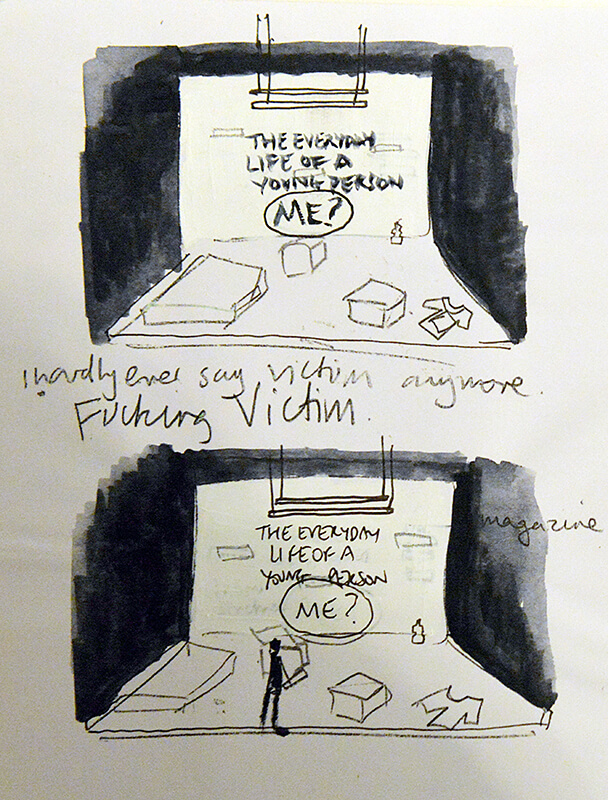 THE EVERYDAY
LIFE OF A
YOUNG PERSON
ME?
I hardly ever say victim anymore.
Fucking Victim.
magazine
THE EVERYDAY
LIFE OF A
YOUNG PERSON
ME?